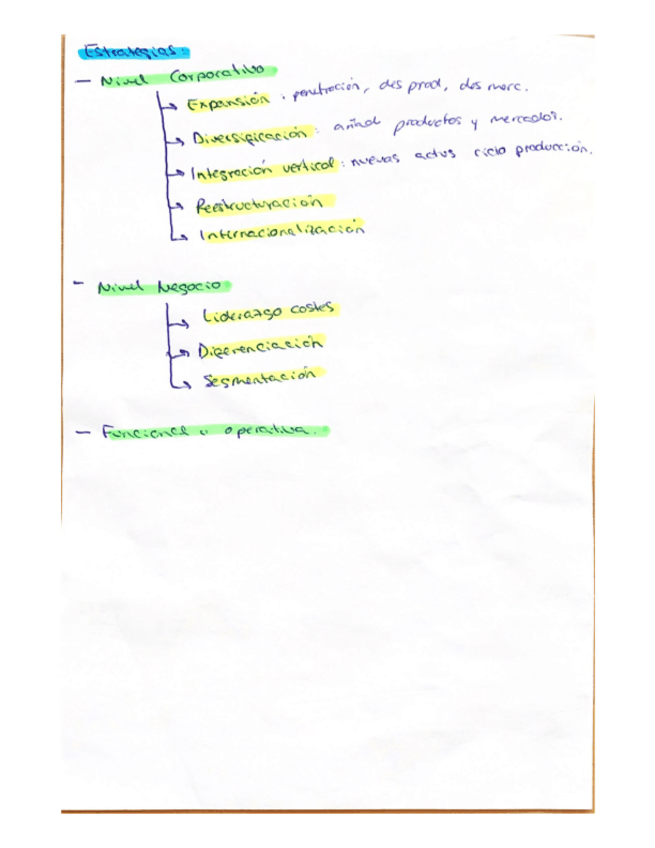 Estrategias:
- Nivel Corporativo
Expansión: penetración, des prod, des merc.
Diversificación: añad productos y mercados.
Integración vertical: nuevas actvs ciclo producción.
Reestructuración
Internacionalización
- Nivel Negocio
Liderazgo costes
Diferenciación
Segmentación
- Funcional u operativa.